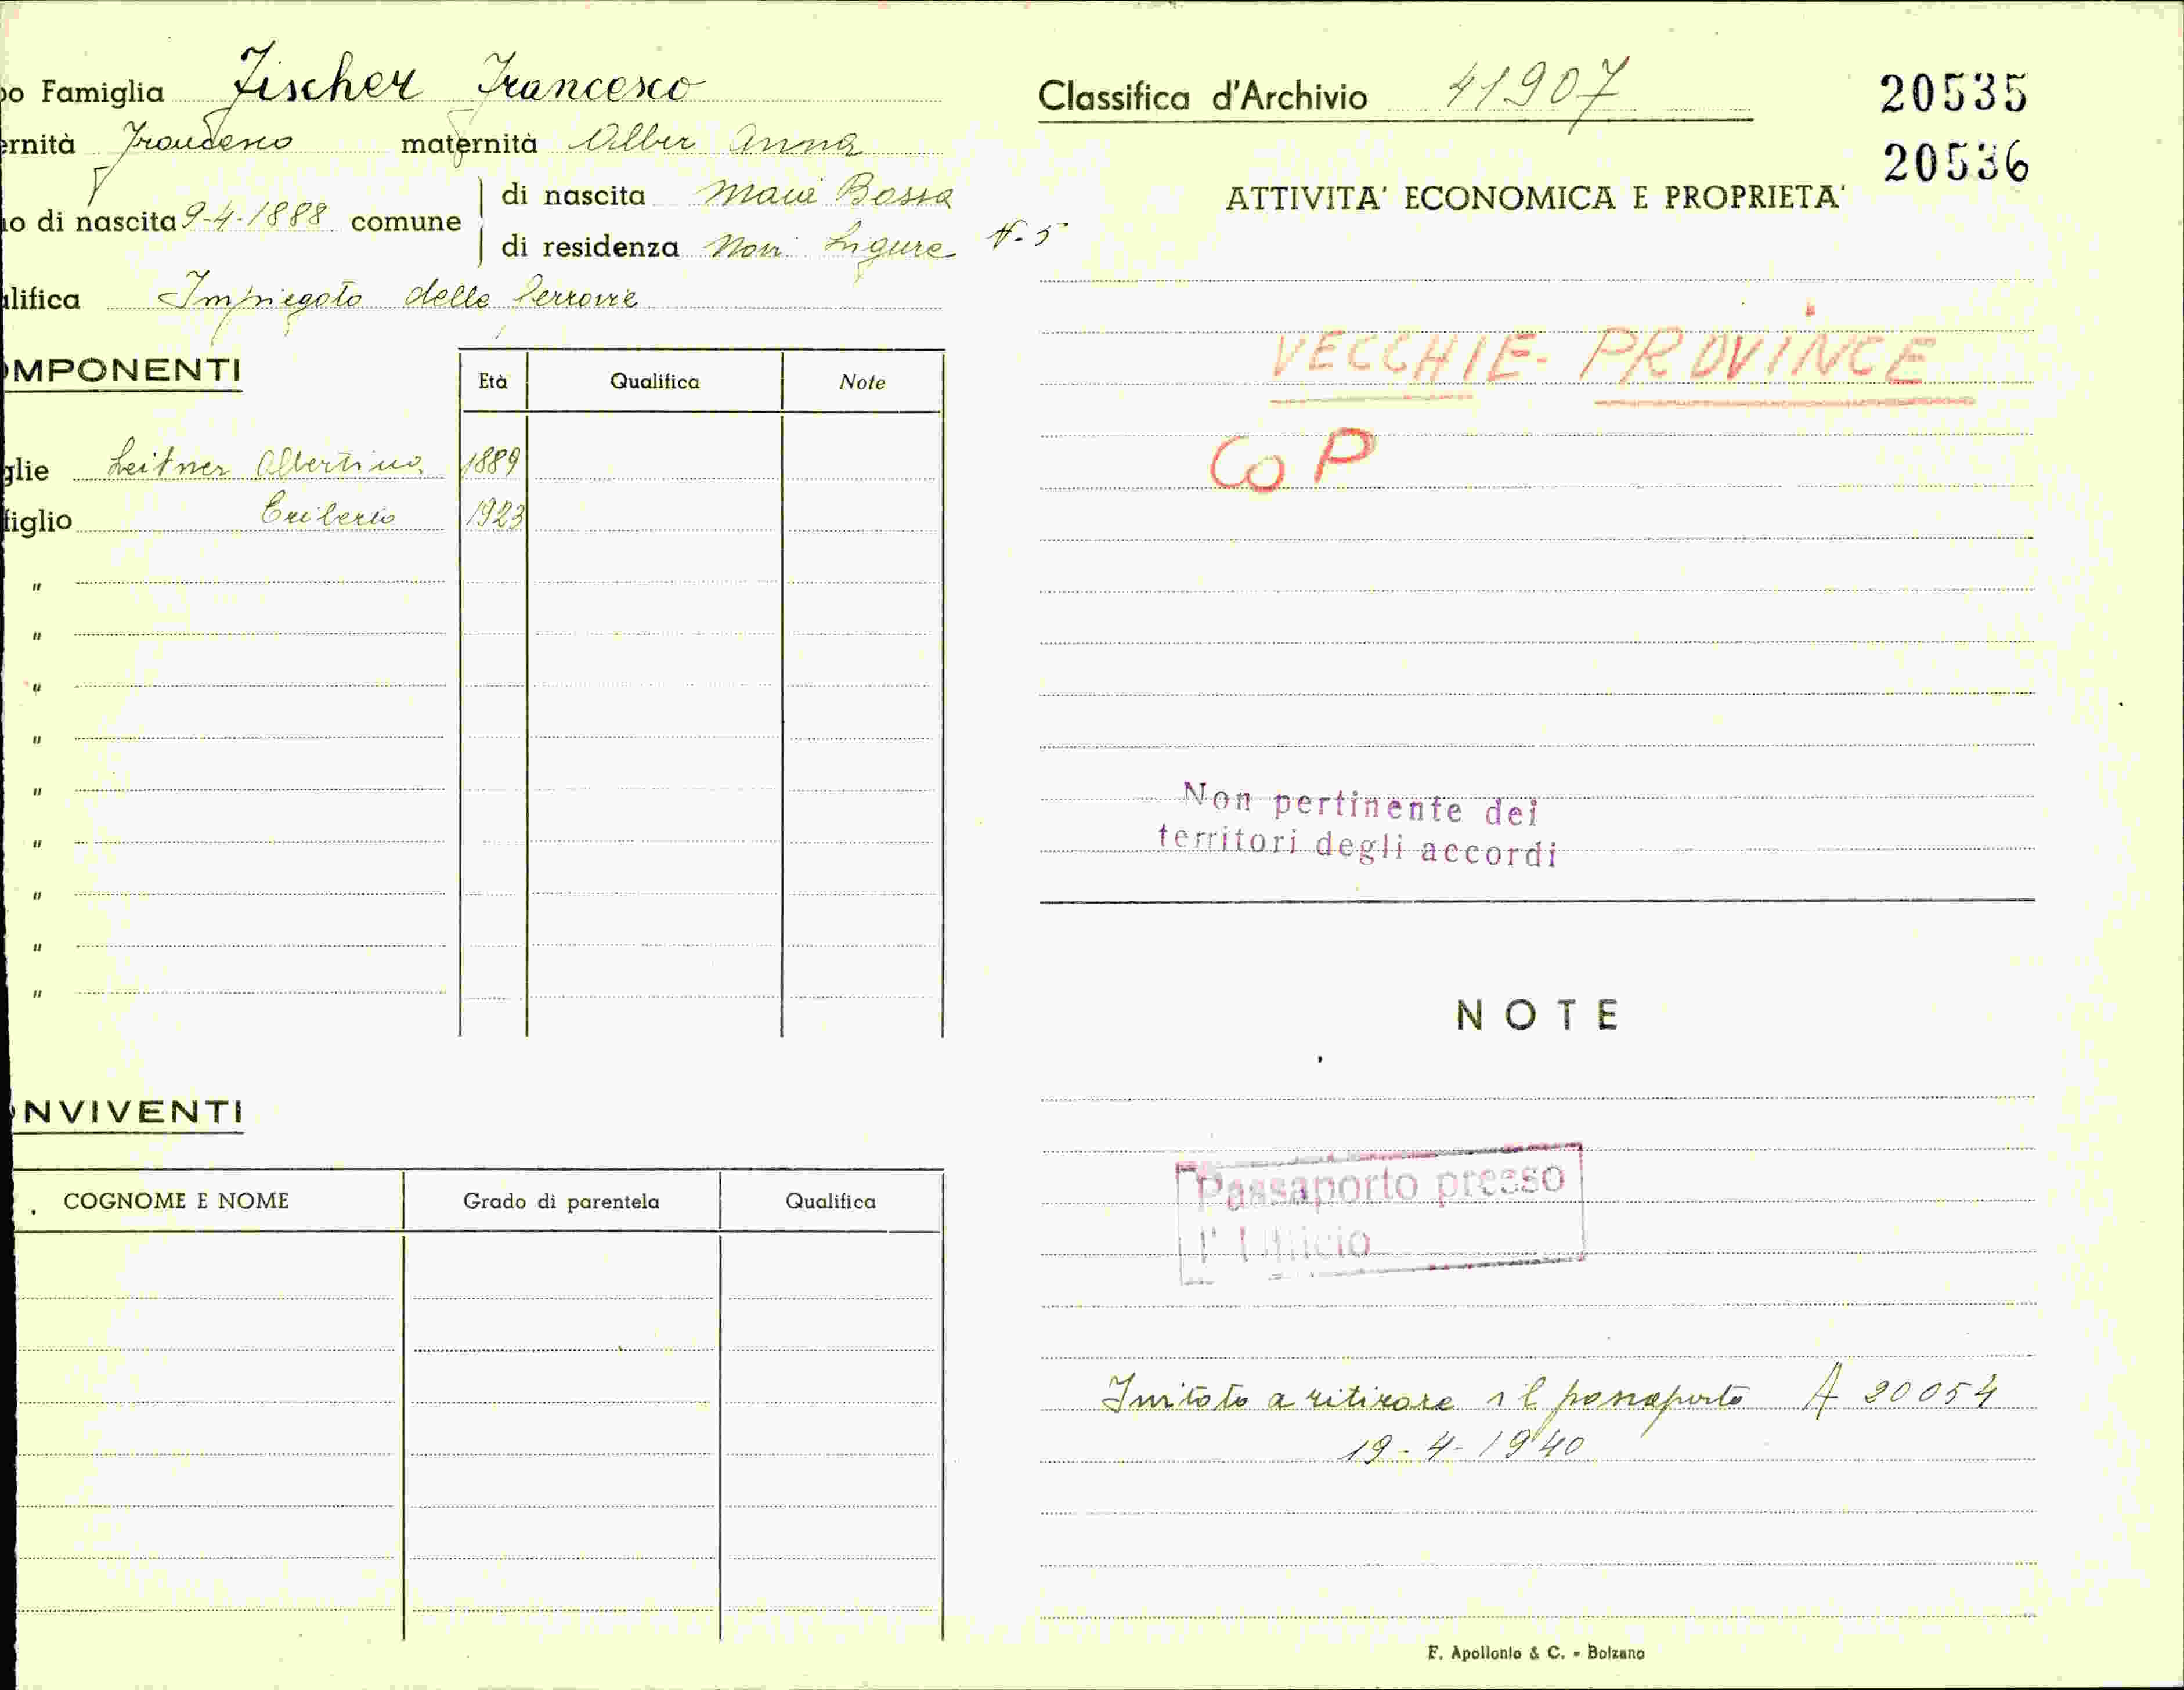 po Famiglia Fischer Francesco
ernità Francesco maternità Alber Anna
no di nascita 9-4-1888 comune
di nascita Maia Bassa
di residenza Novi Ligure N. 5
alifica Impiegato delle ferrovie
OMPONENTI
Età Qualifica Note
glie Leitner Albertina 1889
figlio Eriberto 1923
"
"
"
"
"
"
"
"
"
ONVIVENTI
. COGNOME E NOME Grado di parentela Qualifica
Classifica d'Archivio 41907
20535
20536
ATTIVITA' ECONOMICA E PROPRIETA'
VECCHIE-PROVINCE
Co P
Non pertinente dei
territori degli accordi
NOTE
Passaporto presso
l'Ufficio
Invitato a ritirare il passaporto A 20054
19-4-1940
F. Apollonio & C. - Bolzano